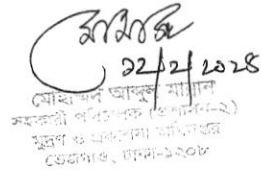 ২২/২/২০২৪
মোহাম্মদ আব্দুল মান্নান
সহকারী পরিচালক (প্রশাসন-২)
মুদ্রণ ও প্রকাশনা অধিদপ্তর
তেজগাঁও, ঢাকা-১২০৮